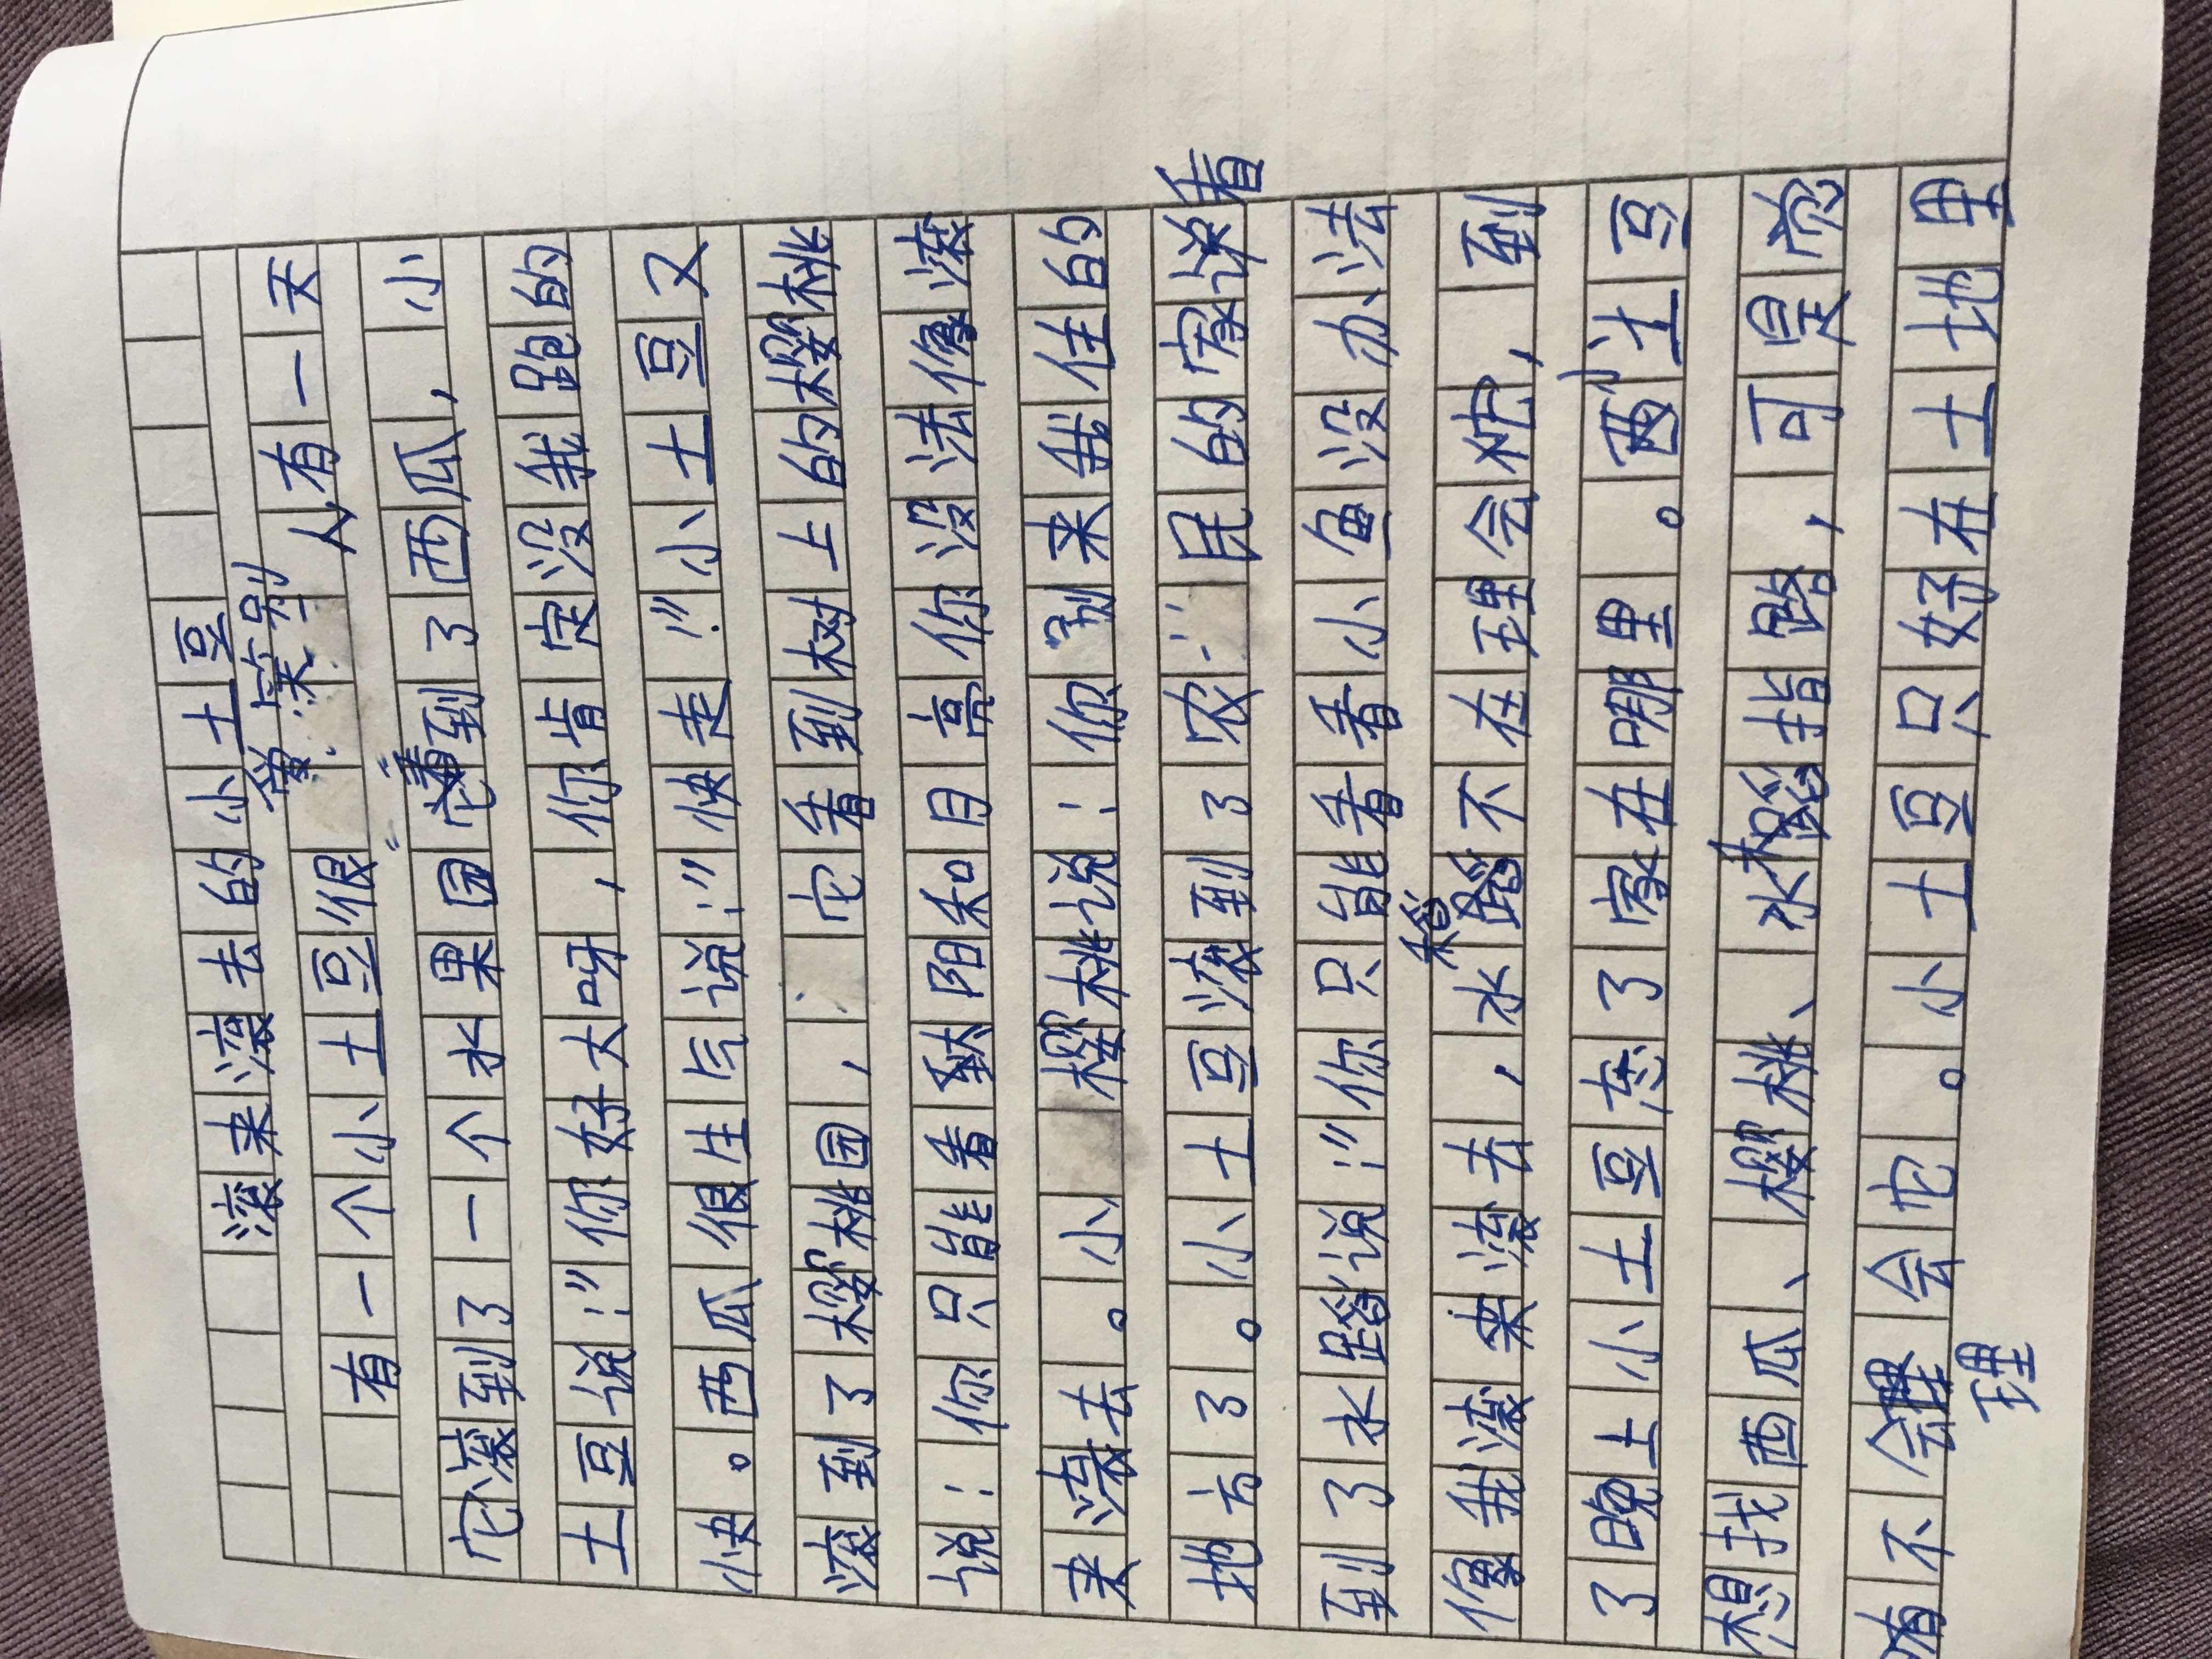 滚来滚去的小土豆
有一个小土豆很常笑别人有一天
它滚到了一个水果园它看到了西瓜，小
土豆说：“你好大呀，你肯定没我跑的
快。西瓜很生气说：“快走！”小土豆又
滚到了樱桃园，它看到树上的樱桃
说：你只能看太阳和月亮你没法像滚
来滚去。小樱桃说：你别来我住的
地方了。小土豆滚到了农民的家看
到了水蹈说：“你只能看看小鱼没办法
像我滚来滚去，水稻不在理会它，到
了晚上小土豆忘了家在哪里。小土豆
想找西瓜、樱桃、水稻指路，可是
有不会理会它。小土豆只好在土地里